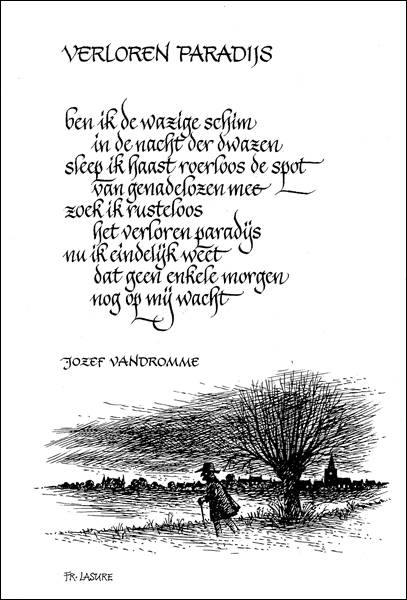 VERLOREN PARADIJS
ben ik de wazige schim
in de nacht der dwazen
sleep ik haast roerloos de spot
van genadelozen mee
zoek ik rusteloos
het verloren paradijs
nu ik eindelijk weet
dat geen enkele morgen
nog op mij wacht
JOZEF VANDROMME
FR. LASURE